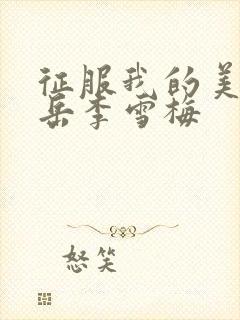 征服我的美
岳李雪梅
怒笑